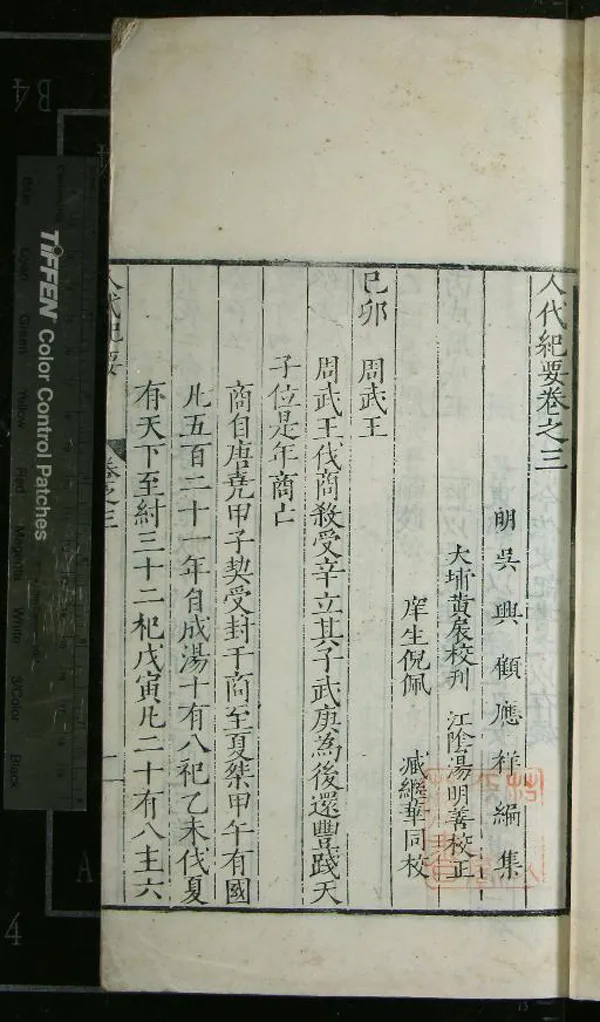 人代紀要卷之三
明吳興顧應祥編集
大埔黃扆校刊 江陰湯明善校正
庠生倪佩 臧繼華同校
己卯 周武王
周武王伐商殺受辛立其子武庚為後還豐踐天
子位是年商亡
商自唐堯甲子契受封于商至夏桀甲午有國
凡五百二十一年自成湯十有八祀乙未伐夏
有天下至紂三十二祀戊寅凡二十有八主六
人代紀要 卷之三 一
TIFFEN Color Control Patches
Blue Cyan Green Yellow Red Magenta White 3/Color Black
B4
A
4